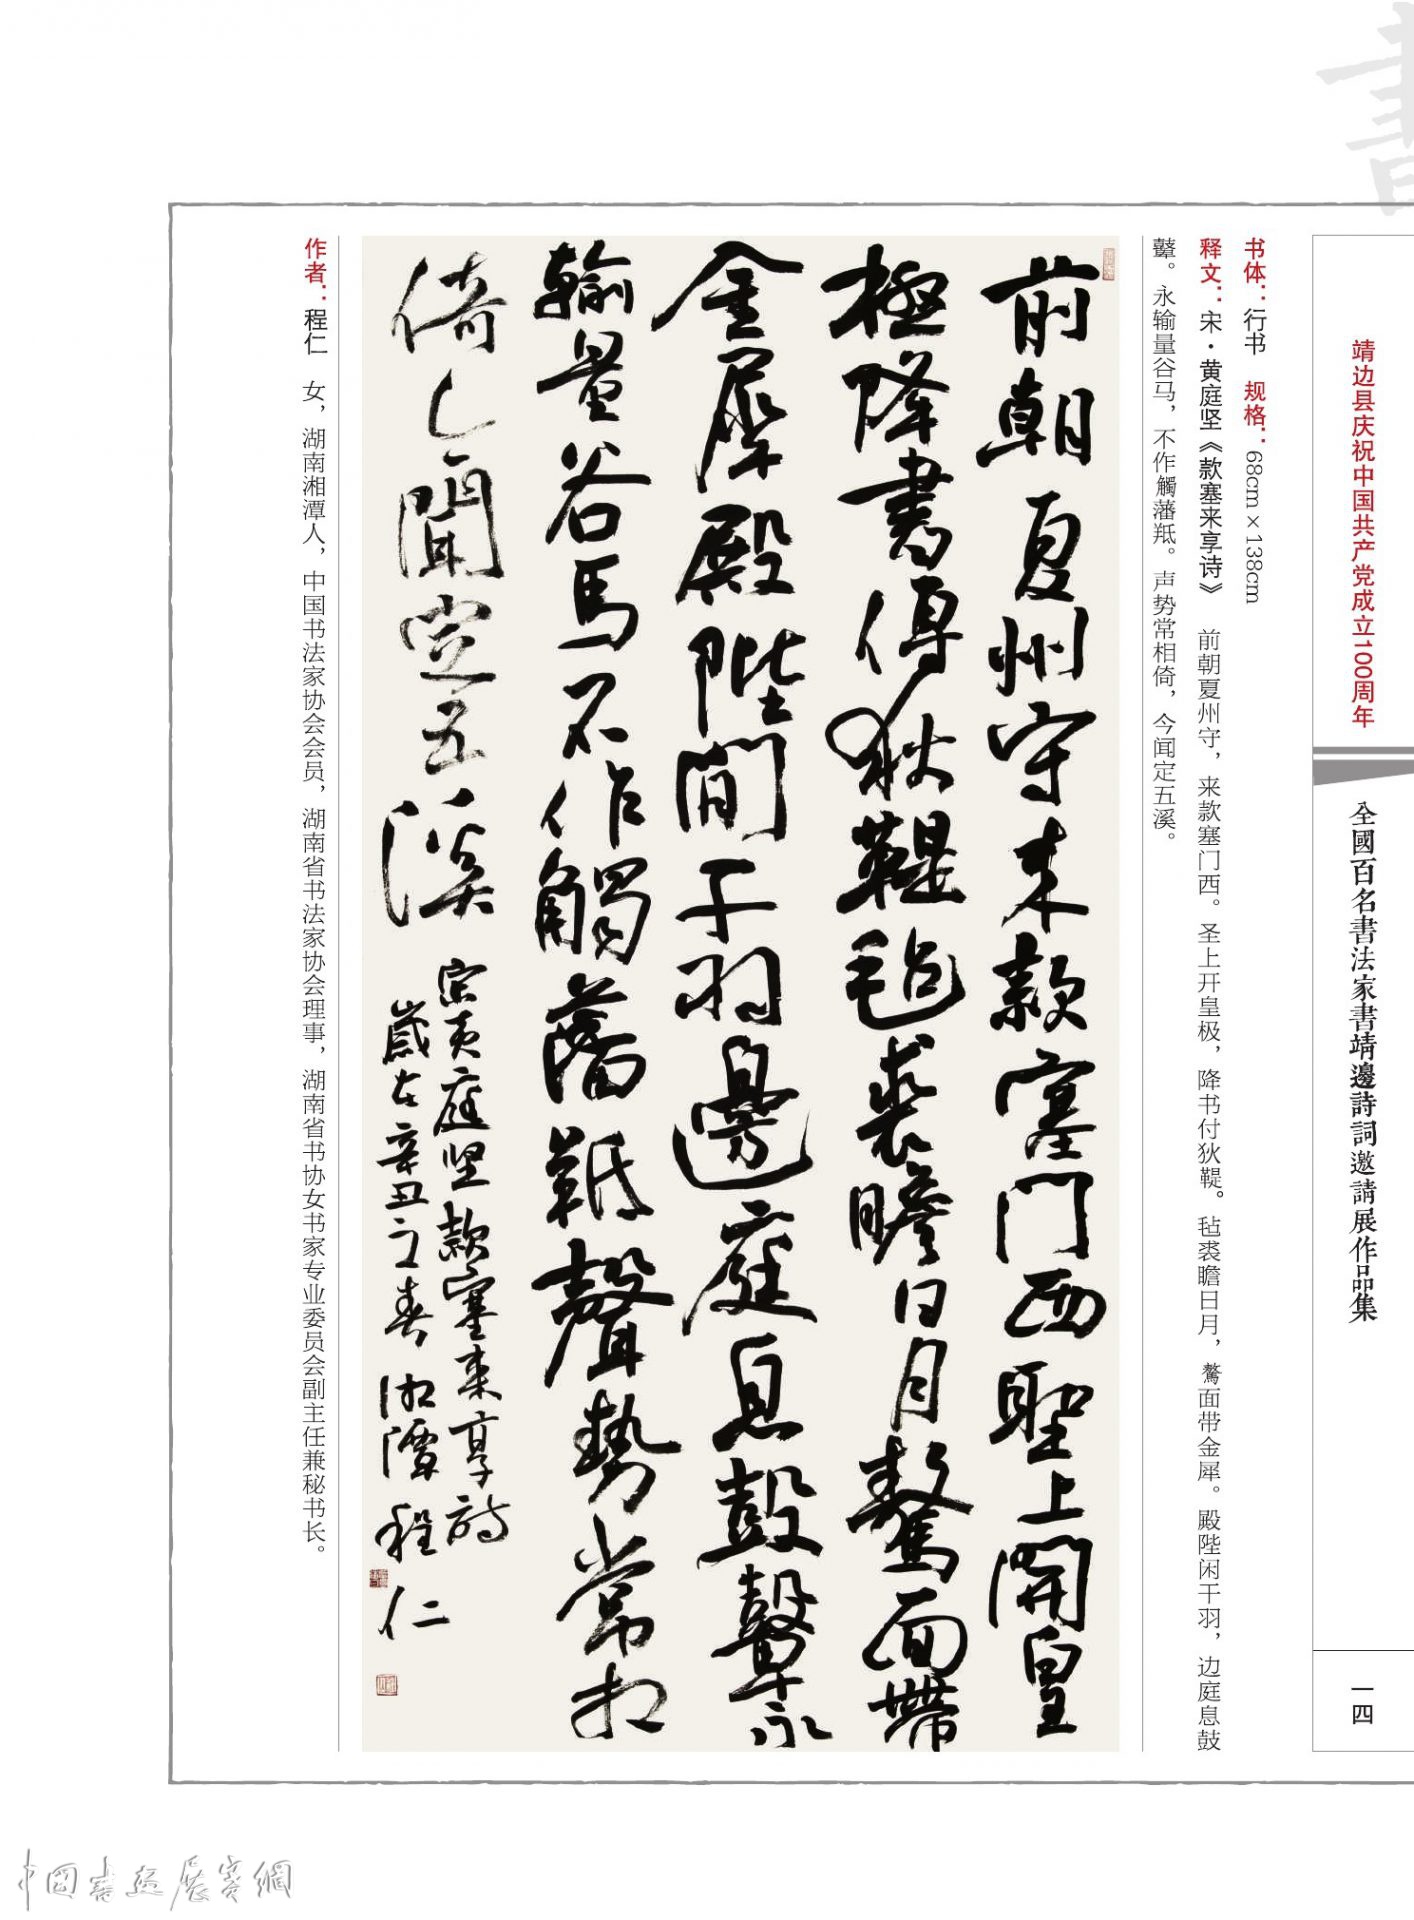 靖边县庆祝中国共产党成立100周年
全國百名書法家書靖邊詩詞邀請展作品集
一四
书体：行书 规格：68cm×138cm
释文：宋·黄庭坚《款塞来享诗》 前朝夏州守，来款塞门西。圣上开皇极，降书付狄鞮。毡裘瞻日月，剺面带金犀。殿陛闲干羽，边庭息鼓
鼙。永输量谷马，不作觸藩羝。声势常相倚，今闻定五溪。
前朝夏州守来款塞門西聖上開皇
極降書付狄鞮毡裘瞻日月剺面帶
金犀殿陛閒干羽邊庭息鼓鼙永
輸量谷馬不作觸藩羝聲勢常相
倚今聞定五溪
宋黄庭坚款塞来享詩
歲在辛丑之春湘潭程仁
作者：程仁 女，湖南湘潭人，中国书法家协会会员，湖南省书法家协会理事，湖南省书协女书家专业委员会副主任兼秘书长。
書
中國書畫展賽網